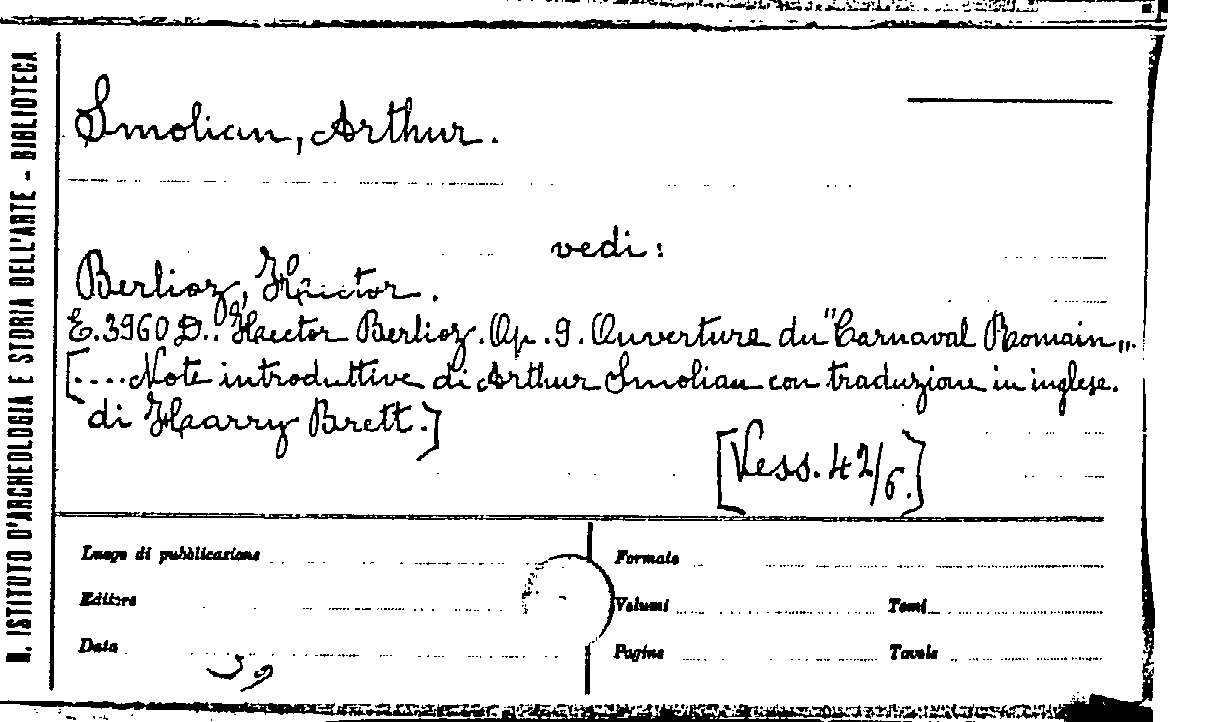 R. ISTITUTO D'ARCHEOLOGIA E STORIA DELL'ARTE - BIBLIOTECA
Smolian, Arthur.
vedi:
Berlioz, Hector.
E.3960 D.: "Hector Berlioz. Op. 9. Ouverture du "Carnaval Romain„.
[....Note introduttive di Arthur Smolian con traduzione in inglese.
di Harry Brett.]
[Vess. 42/6.]
Luogo di pubblicazione
Formato
Editore
Volumi
Tomi
Data
Pagine
Tavole